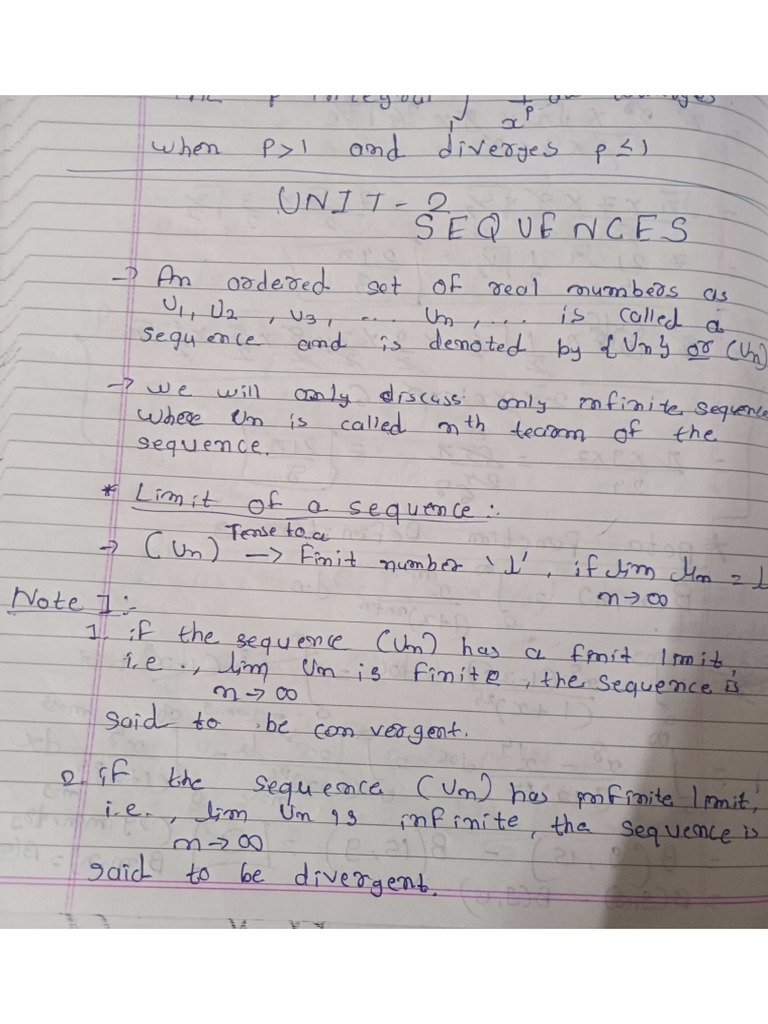 when P>1 and diverges p≤1
UNIT-2
SEQUENCES
→ An ordered set of real numbers as
U1, U2, U3, ... Un, ... is called a
sequence and is denoted by {Un} or (Un)
→ we will only discuss only infinite sequence
where Un is called nth tecrom of the
sequence.
* Limit of a sequence:-
Tense to a
→ (Un) → Finit number 'l', if lim Un = l
n→∞
Note I:-
1. if the sequence (Un) has a finit limit,
i.e., lim Un is finite, the sequence is
n→∞
said to be convergent.
2. if the sequence (Un) has infinite limit,
i.e., lim Un is infinite, the sequence is
n→∞
said to be divergent.